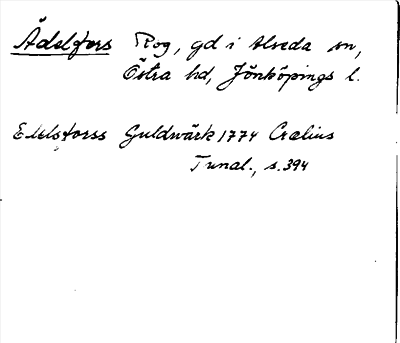 Ädelfors Rog, gd i Alseda sn,
Östra hd, Jönköpings l.
Edelsforss Guldwärk 1774 Crælius
Tunal., s. 394